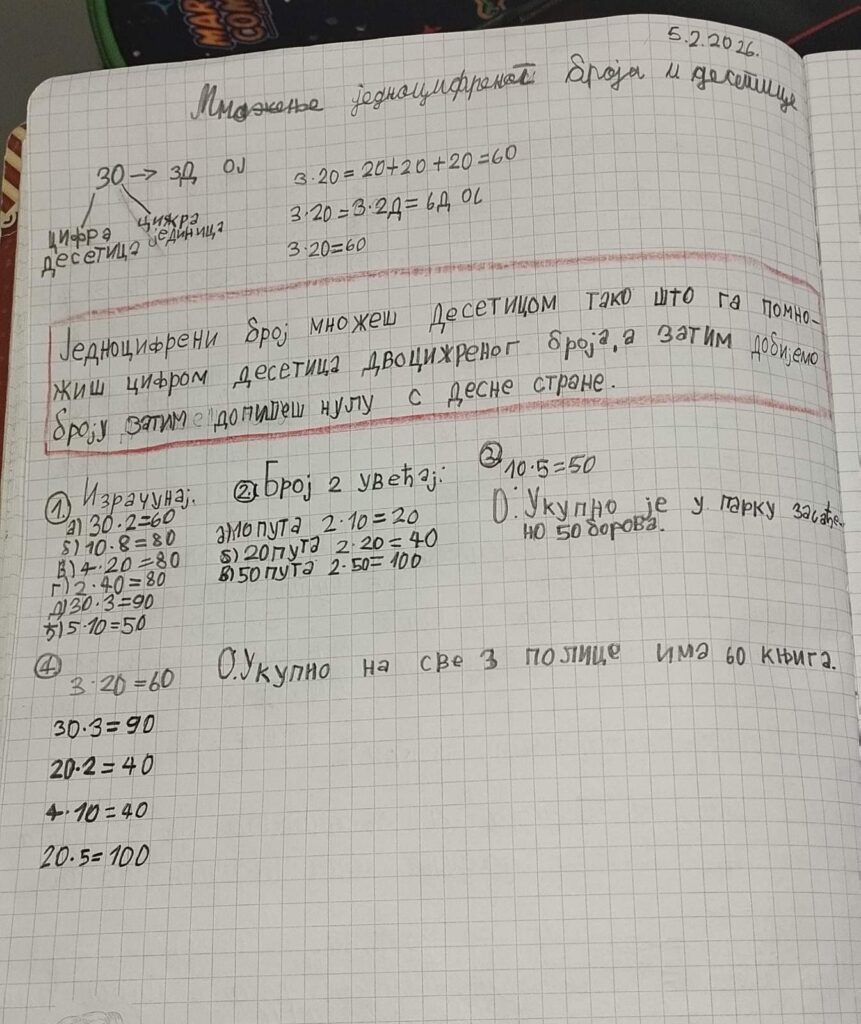 5.2.2026.
Множење једноцифреног броја и десетице
30 → 3Д 0Ј
цифра десетица
цижра јединица
3·20=20+20+20=60
3·20=3·2Д=6Д 0Ј
3·20=60
Једноцифрени број множеш десетицом тако што га помно-
жиш цифром десетица двоцижреног броја, а затим добијемо
броју затим допишеш нулу с десне стране.
1. Израчунај.
а) 30·2=60
б) 10·8=80
в) 4·20=80
г) 2·40=80
д) 30·3=90
ђ) 5·10=50
2. Број 2 увећај:
а) 10 пута 2·10=20
б) 20 пута 2·20=40
в) 50 пута 2·50=100
3. 10·5=50
О: Укупно је у парку засађе-
но 50 борова.
4. 3·20=60
О. Укупно на све 3 полице има 60 књига.
30·3=90
20·2=40
4·10=40
20·5=100